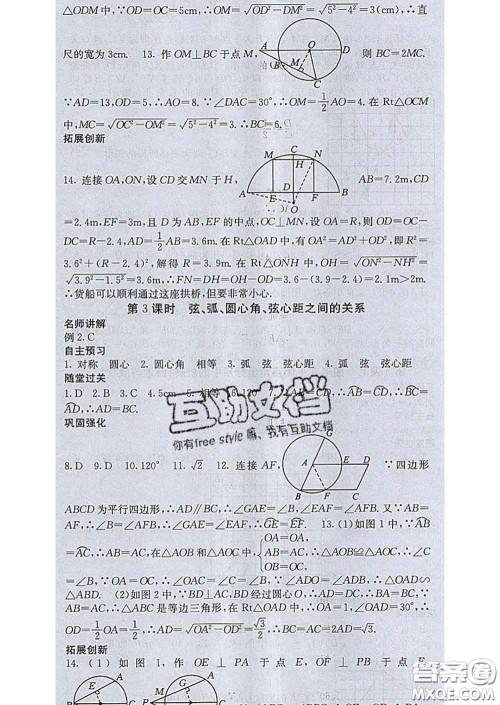 △ODM中,∵OD=OC=5cm,∴OM=√(OD²-DM²)=√(5²-4²)=3(cm),∴直
尺的宽为3cm. 13. 作OM⊥BC于点M, 则BC=2MC.
A O D M C
∵AD=13,OD=5,∴AO=8.∵∠DAC=30°,∴OM=1/2AO=4.在Rt△OCM
中,MC=√(OC²-OM²)=√(5²-4²)=3.∴BC=6.
拓展创新
M C N A E D F B O
14. 连接OA,ON,设CD交MN于H, AB=7.2m,CD
=2.4m,EF=3m,且D为AB,EF的中点,OC⊥MN,设OA=R,则OD=OC-
DC=R-2.4,AD=1/2AB=3.6m.在Rt△OAD中,有OA²=AD²+OD²,即R²=
3.6²+(R-2.4)²,解得R=3.9m.在Rt△ONH中,OH=√(ON²-NH²)=
√(3.9²-1.5²)=3.6m.∴FN=DH=OH-OD=3.6-(3.9-2.4)=2.1m>2m.
∴货船可以顺利通过这座拱桥,但要非常小心.
第3课时 弦、弧、圆心角、弦心距之间的关系
名师讲解
例2.C
自主预习
1. 对称 圆心 2. 圆心角 相等 3. 弧 弦 弦心距 4. 弧 弦 弦心距
随堂过关
1.D 2.B 3.C 4.5cm 5.相等
BD,∴AD=BC.
巩固强化
互助文档
你有free style 嘛,我有互助文档
8.D 9.D 10.120° 11.√2 12.连接AF, ∵四边形
G A E D B F C
ABCD为平行四边形,∴AD∥BC,∴∠GAE=∠B,∠EAF=∠AFB.又∵AB=
AF,∴∠B=∠AFB,∴∠GAE=∠EAF,∴GE=EF. 13.(1)如图1中,∵AB
=AC,∴AB=AC,在△AOB和△AOC中,{OA=OA, AB=AC, OB=OC,∴△AOB≌△AOC,∴∠C
=∠B,∵OA=OC,∴∠OAC=∠C=∠B,∵∠ADO=∠ADB,∴△OAD∽
△ABD. (2)如图2中,∵BD⊥AC,BD经过圆心O,∴AD=DC,∴BA=BC,∵
AB=AC,∴△ABC是等边三角形,在Rt△OAD中,∵OA=1,∠OAD=30°,∴
OD=1/2OA=1/2,∴AD=√(OA²-OD²)=√3/2,∴BC=AC=2AD=√3.
拓展创新
14.(1)如图1,作OE⊥PA于点E,OF⊥PB于点F
B A
E
M
G
答案圈
MXQE.COM